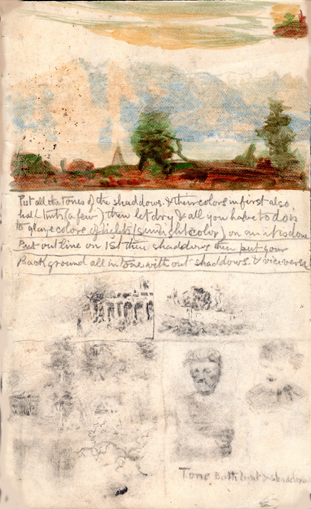 Put all the tones of the shaddows & their colors in first also
half tints (a few) then let dry & all you have to do is
to glaze colors of lights (sunlight color) on an it is done
Put out line on 1st then shaddows then put your
Background all in tone with out shaddows. & viceversa
Tone Both Light & shaddow